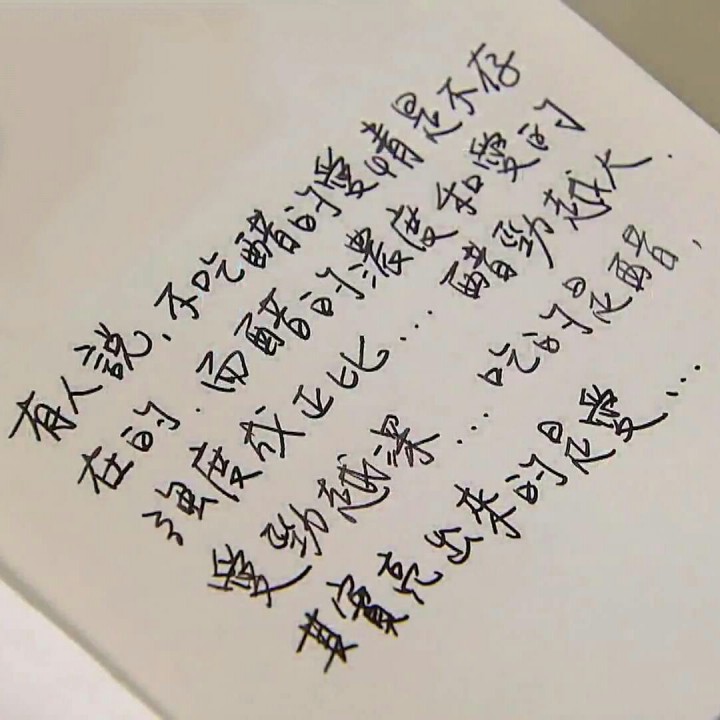 有人說,不吃醋的愛情是不存
在的.而醋的濃度和愛的
強度成正比...醋勁越大.
愛勁越深...吃的是醋,
其實亮出來的是愛...